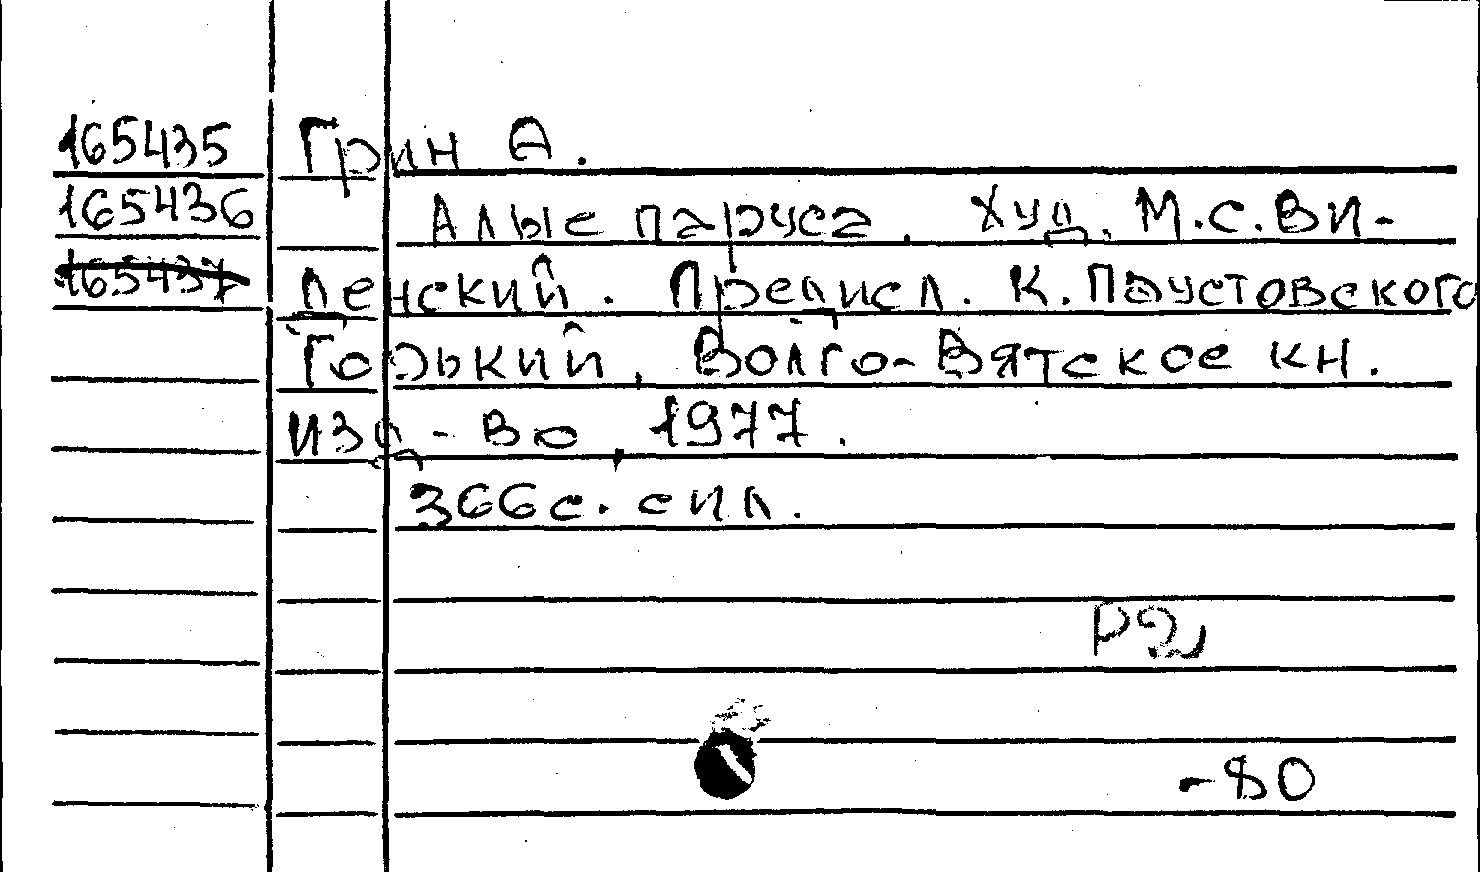 165435 Грин А.
165436 Алые паруса. Худ. М.С.Ви-
165437 денский. Предисл. К.Паустовского
Горький, Волго-Вятское кн.
изд-во, 1977.
366с. сил.
Р2
-80